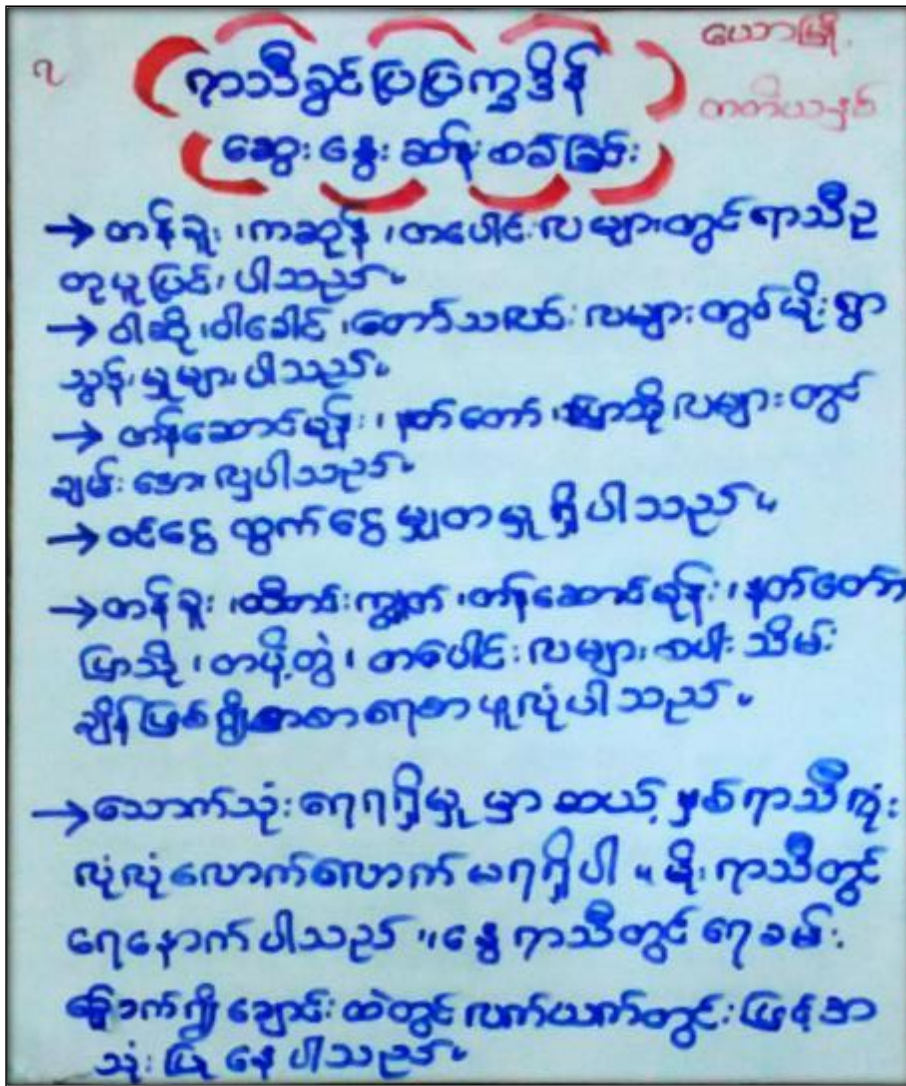 ၇
ယောမြို့
တတိယနှစ်
ရာသီခွင်ပြပြက္ခဒိန်
ဆွေးနွေးဆန်းစစ်ခြင်း
→ တန်ခူး၊ကဆုန်၊တပေါင်းလများတွင်ရာသီဥ
တုပူပြင်းပါသည်။
→ ဝါဆို၊ဝါခေါင်၊တော်သလင်းလများတွင်မိုးရွာ
သွန်းမှုများပါသည်။
→ တန်ဆောင်မုန်း၊နတ်တော်၊ပြာသိုလများတွင်
ချမ်းအေးလှပါသည်။
→ ဝင်ငွေထွက်ငွေမျှတမှုရှိပါသည်။
→ တန်ခူး၊သီတင်းကျွတ်၊တန်ဆောင်မုန်း၊နတ်တော်
ပြာသို၊တပို့တွဲ၊တပေါင်းလများစပါးသိမ်း
ချိန်ဖြစ်၍စားစရာဖူလုံပါသည်။
→ သောက်သုံးရေရရှိမှုမှာဆယ့်နှစ်ရာသီလုံး
လုံလုံလောက်လောက်မရရှိပါ။မိုးရာသီတွင်
ရေနောက်ပါသည်။နွေရာသီတွင်ရေခမ်း
ခြောက်၍ချောင်းထဲတွင်လက်ယက်တွင်းဖြင့်အ
သုံးပြုနေပါသည်။